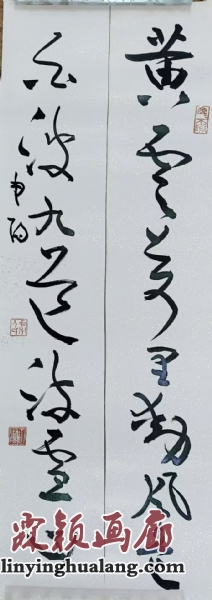 黄雲万里動風色
白波九道流雪山
颖画廊
linyinghualang.com